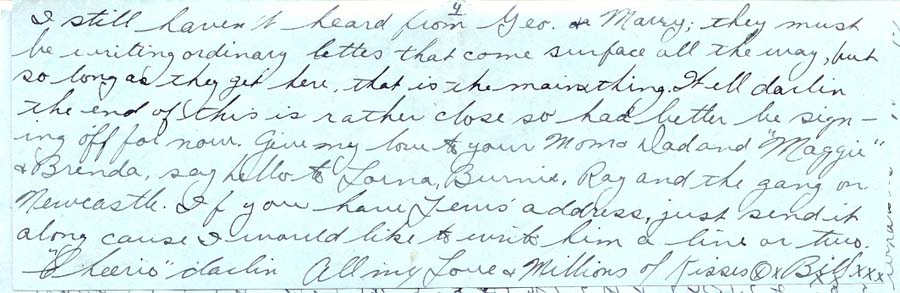 4
I still haven't heard from Geo. & Marry; they must
be writing ordinary lettes that come surface all the way, but
so long as they get here, that is the main thing. Well darlin
the end of this is rather close so had better be sign-
ing off for now. Give my love to your Mom & Dad and "Maggie"
& Brenda, say hello to Lorna, Burnie, Ray and the gang on
Newcastle. If you have Lews' address, just send it
along cause I would like to write him a line or two.
"Cheerio" darlin All my Love & Millions of Kisses x Bill xxx